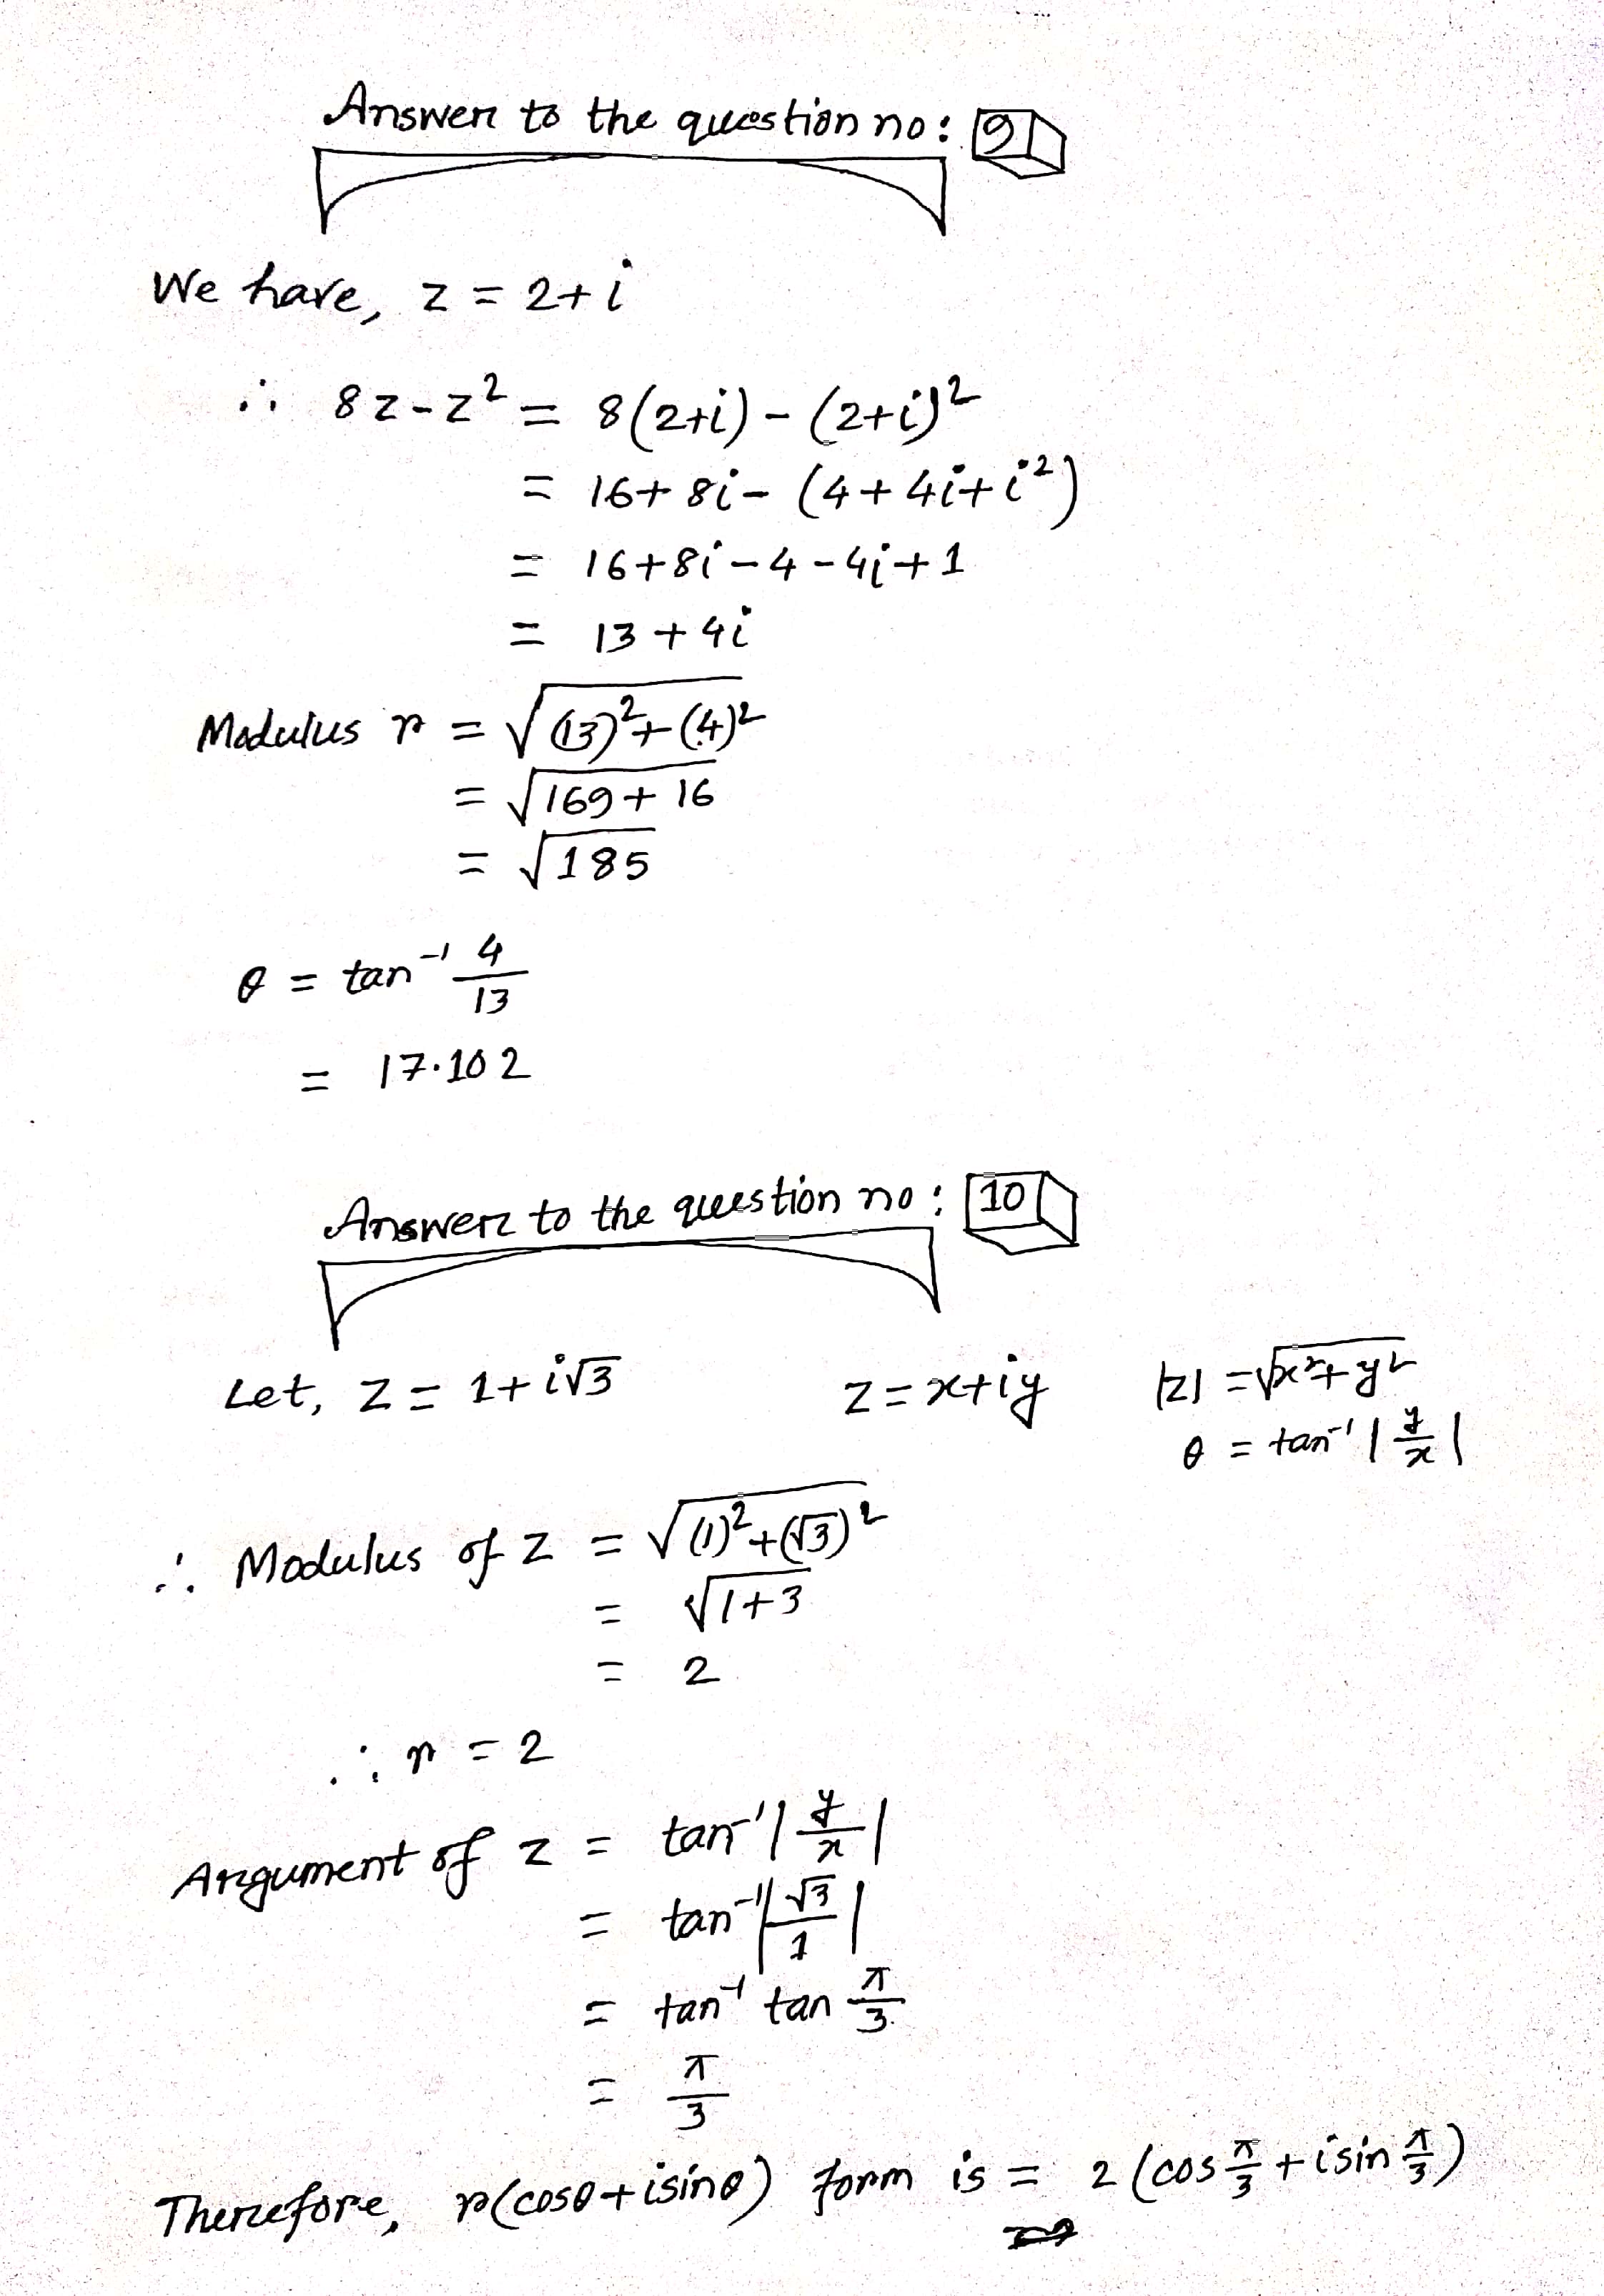 Answer to the question no: 9
We have, z = 2+i
∴ 8z-z² = 8(2+i) - (2+i)²
= 16+8i- (4+4i+i²)
= 16+8i-4-4i+1
= 13+4i
Modulus r = √(13)²+(4)²
= √169+16
= √185
θ = tan⁻¹ 4/13
= 17.102
Answer to the question no: 10
Let, z = 1+i√3 z=x+iy |z| =√x²+y²
θ = tan⁻¹ |y/x|
∴ Modulus of z = √(1)²+(√3)²
= √1+3
= 2
∴ r = 2
Argument of z = tan⁻¹ |y/x|
= tan⁻¹ |√3/1|
= tan⁻¹ tan π/3
= π/3
Therefore, r(cosθ+isinθ) form is = 2 (cos π/3 + isin π/3)